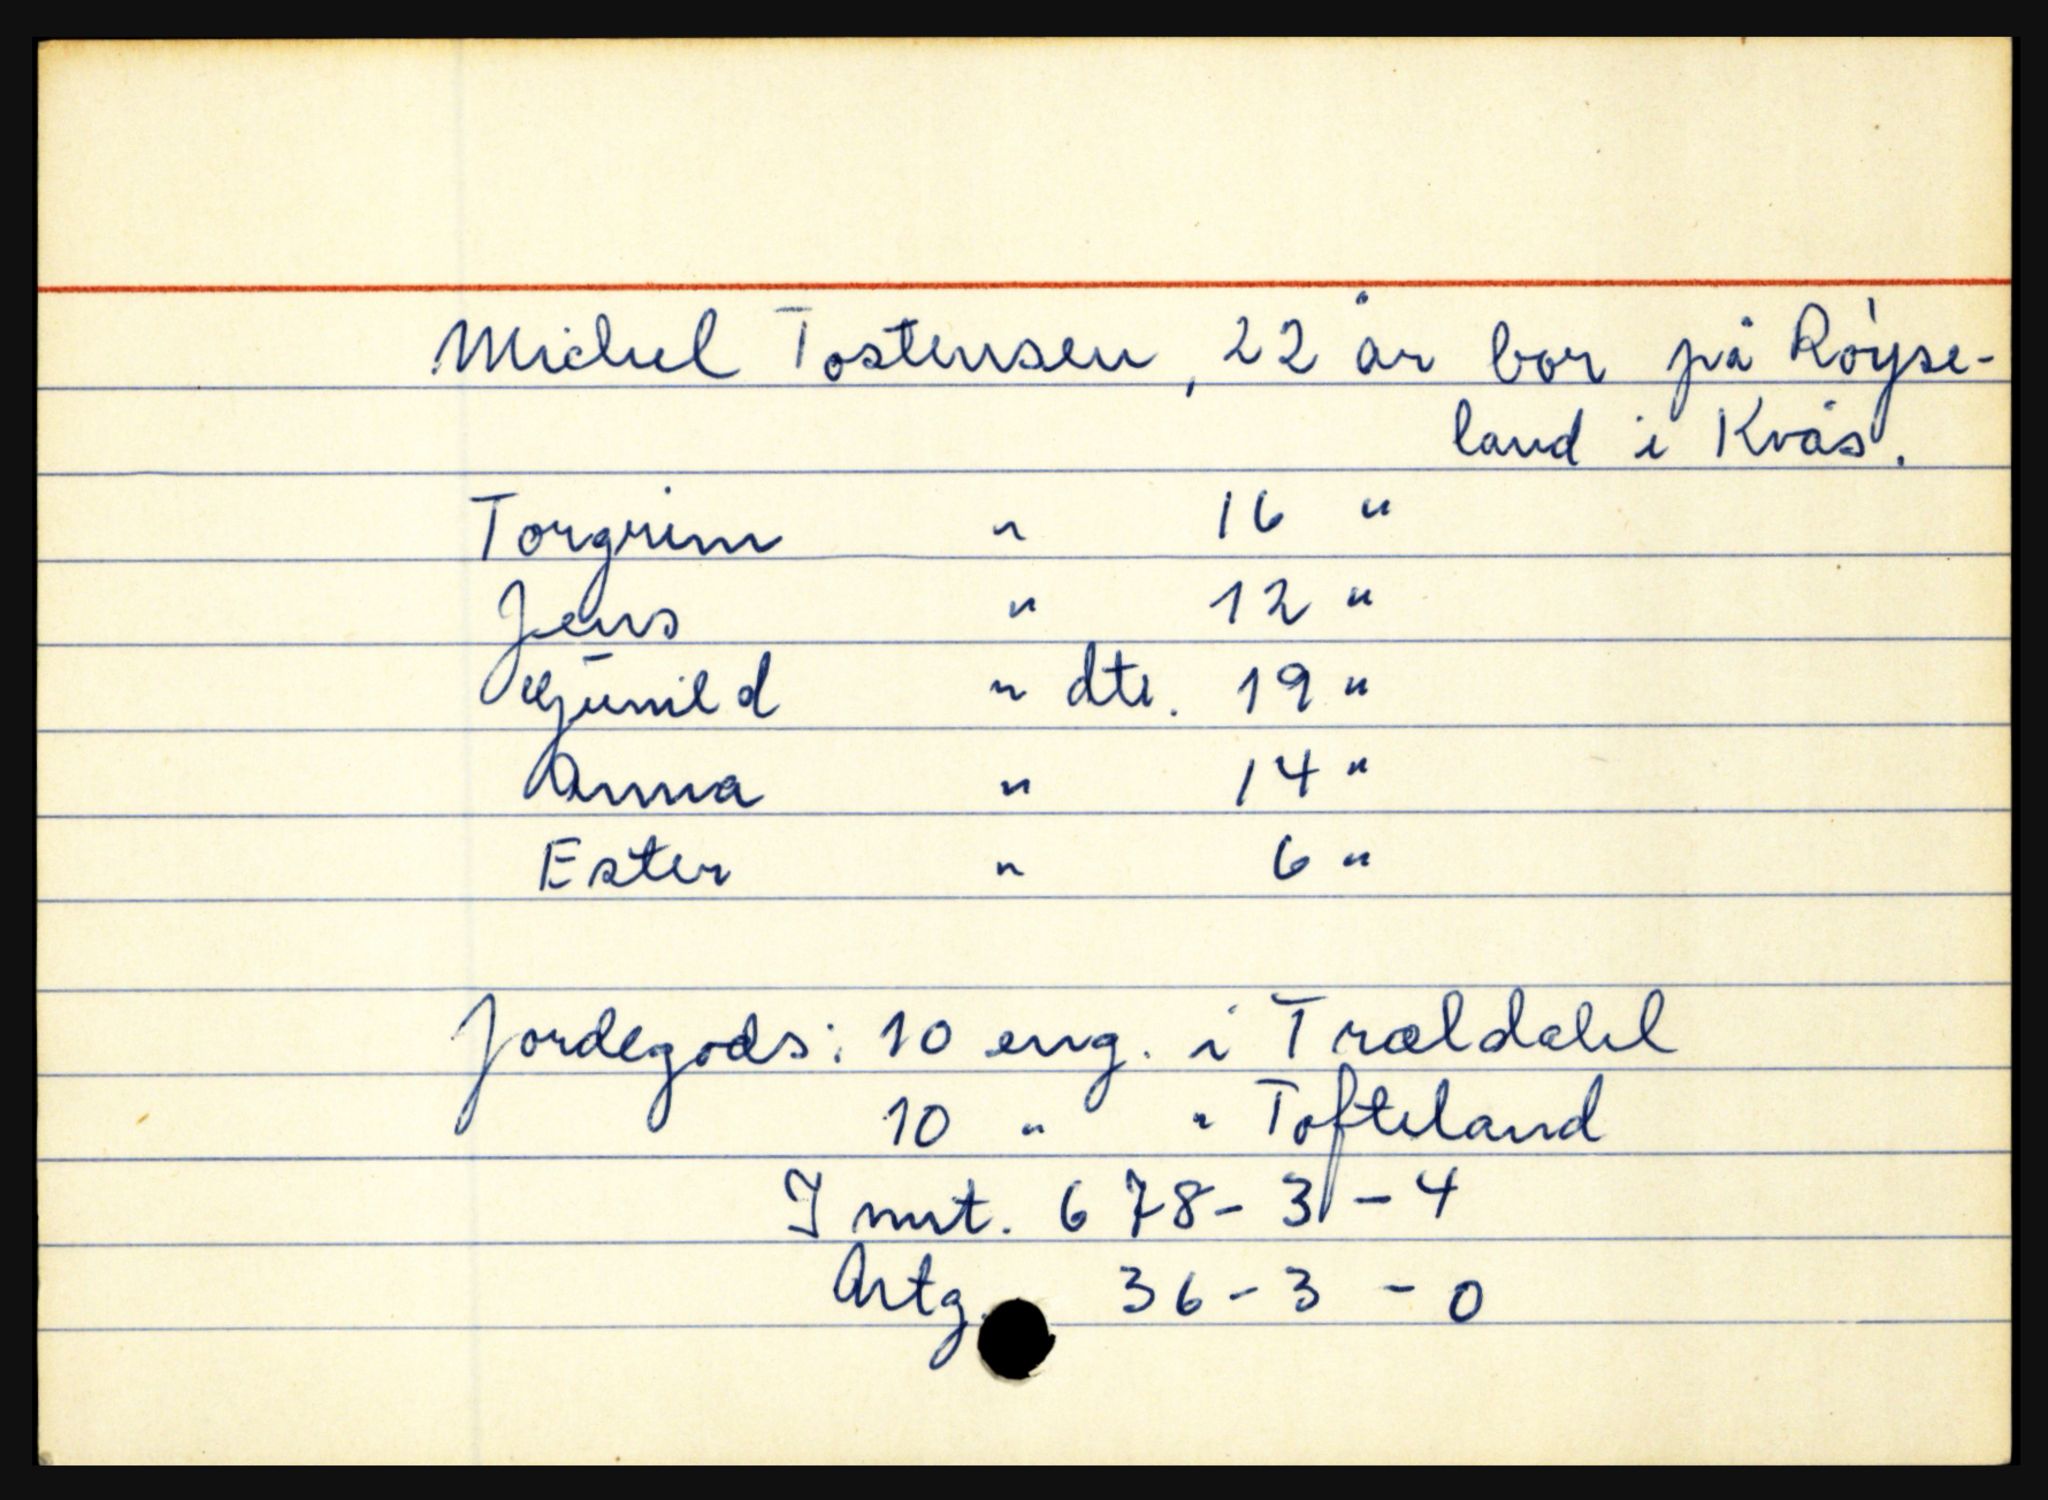 Michel Tostensen, 22 år bor på Røyse-
land i Kvås.
Torgrim " 16 "
Jens " 12 "
Gunild " dte. 19 "
Anna " 14 "
Ester " 6 "
Jordegods: 10 eng. i TræLdahl
10 " " Tofteland
I nnt. 678-3-4
Artg. 36-3-0